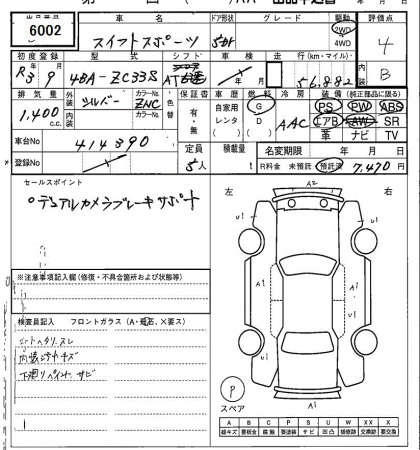 出品番号 車名 ドア形状 グレード 駆動 評価点
6002 スイフトスポーツ 5DH 2WD 4WD 4
初度登録 型式 シフト 車検 走行(km・マイル) 内装
R3 9 4BA-ZC33S AT 年 月 56,882 B
排気量 外装 カラーNo. 色替 保証書 車歴 燃料 冷房 装備 (純正部品に限る)
1,400 c.c. シルバー ZNC 有・無 自家用 レンタ G D AAC PS PW ABS
内装 カラーNo. エアB AW SR
車台No 414390 革 ナビ TV
登録No 定員 5人 積載量 t 名変期限 年 月 日
R料金 未預託 預託済 7,470 円
セールスポイント
○デュアルカメラブレーキサポート
左 右
A2
U1 U1
A1 A1
U1 U1
A1
※注意事項記入欄(修復・不具合箇所および状態等)
検査員記入 フロントガラス (A・飛石、X要ス)
シートヘタリ、スレ
内装汚れキズ
下廻りペイント、サビ
P
スペア
A B C P S U W XX X
線キズ 要板金 腐蝕 要塗装 サビ 凹凸 補修跡 交換跡 要交換